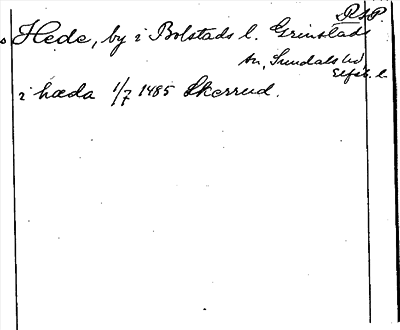 RSP
Hede, by i Bolstads l. Grinstads
sn, Sundals hd
Elfsb. l.
i hæda 1/7 1485 Skerrud.